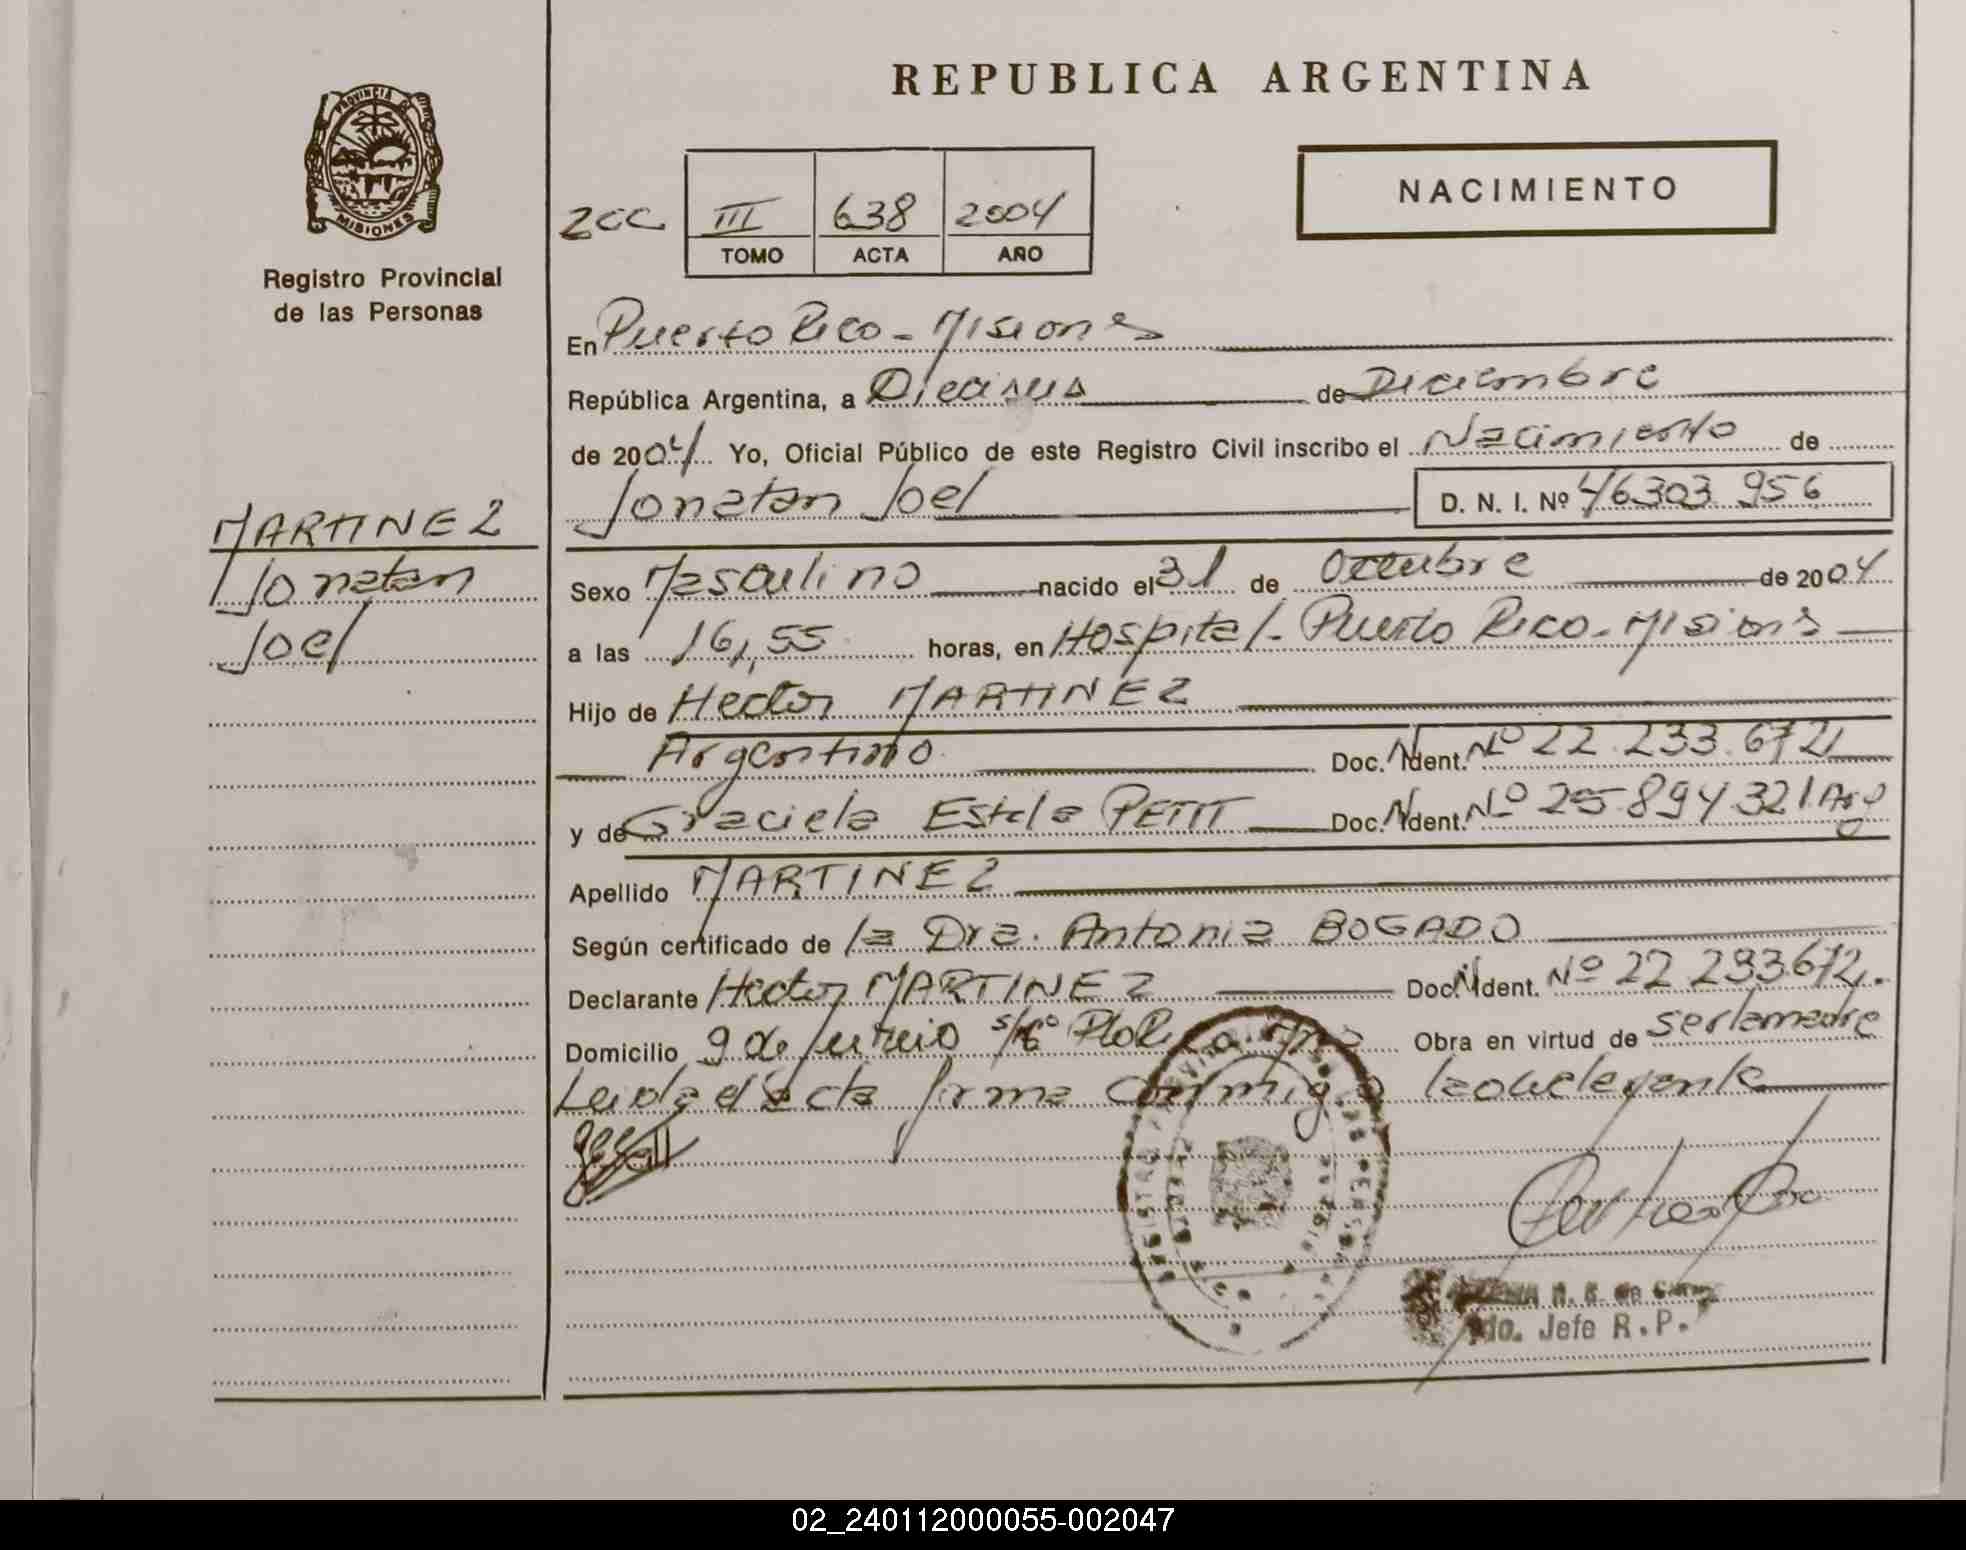 REPUBLICA ARGENTINA
PROVINCIA DE
MISIONES
Registro Provincial
de las Personas
NACIMIENTO
2CC III 638 2004
TOMO ACTA AÑO
En Puerto Rico - Misiones
República Argentina, a Dieciseis de Diciembre
de 2004 Yo, Oficial Público de este Registro Civil inscribo el Nacimiento de
Jonatan Joel D. N. I. Nº 46303 956
MARTINEZ
Jonatan
Joel
Sexo Masculino nacido el 31 de Octubre de 2004
a las 16,55 horas, en Hospital - Puerto Rico - Misiones
Hijo de Hector MARTINEZ
Argentino Doc. N Ident. Nº 22.233.672
y de Graciela Estela PETIT Doc. N Ident. Nº 25.894.321 Arg
Apellido MARTINEZ
Según certificado de la Dra. Antonia BOGADO
Declarante Hector MARTINEZ Doc. N Ident. Nº 22 233.672.
Domicilio 9 de Julio s/nº Pto R Obra en virtud de ser la madre
Leida el acta firma conmigo
Jefe R.P.
02_240112000055-002047